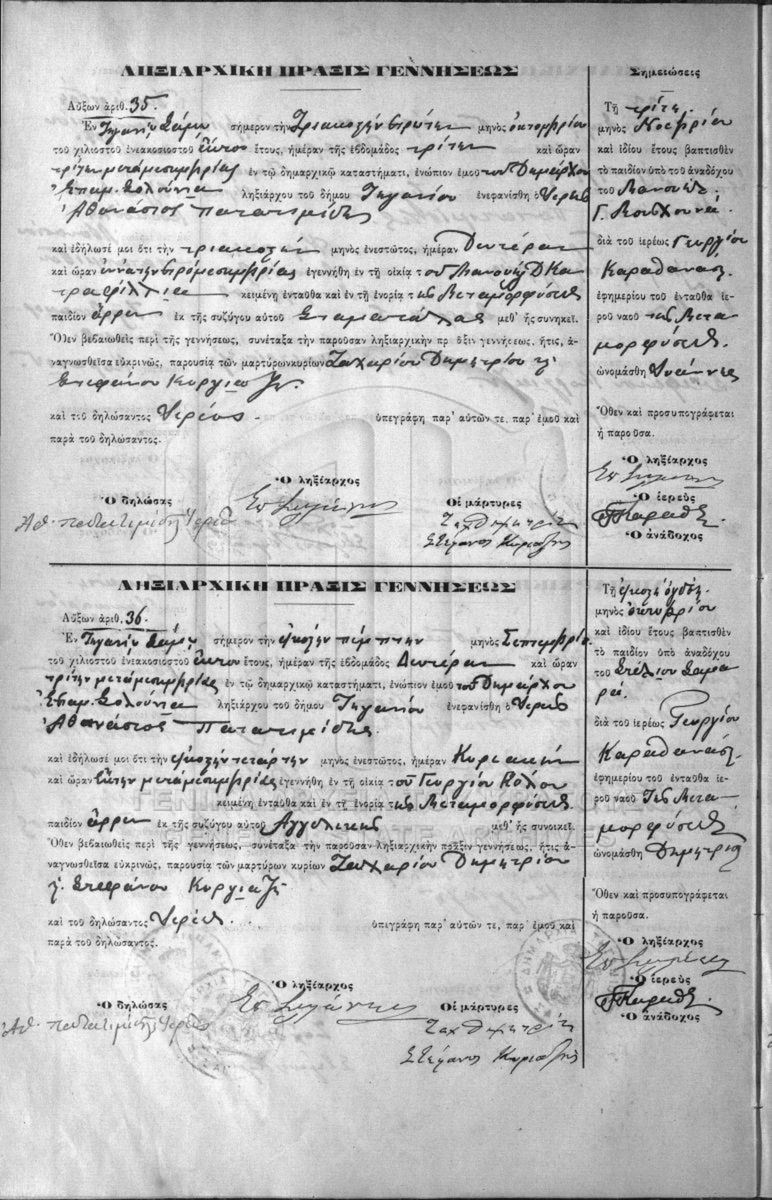 ΛΗΞΙΑΡΧΙΚΗ ΠΡΑΞΙΣ ΓΕΝΝΗΣΕΩΣ
Αὔξων ἀριθ. 35.
Ἐν Τηγανίῳ Σάμου σήμερον τὴν Τριακοστὴν πρώτην μηνὸς ὀκτωβρίου
τοῦ χιλιοστοῦ ἐνεακοσιοστοῦ ἔτους, ἡμέραν τῆς ἑβδομάδος τρίτην καὶ ὥραν
τρίτην μεταμεσημβρίας ἐν τῷ δημαρχικῷ καταστήματι, ἐνώπιον ἐμοῦ τοῦ Δημάρχου
Ἐπαμ. ληξιάρχου τοῦ δήμου Τηγανίου ἐνεφανίσθη ὁ Ἱερεὺς
Ἀθανάσιος
καὶ ἐδήλωσέ μοι ὅτι τὴν τριακοστὴν μηνὸς ἐνεστῶτος, ἡμέραν Δευτέραν
καὶ ὥραν ἐγεννήθη ἐν τῇ οἰκίᾳ τοῦ Μανουὴλ Δ Κα
κειμένῃ ἐνταῦθα καὶ ἐν τῇ ἐνορίᾳ τῆς Μεταμορφώσεως
παιδίον ἄρρεν ἐκ τῆς συζύγου αὐτοῦ μεθ' ἧς συνῃκεῖ.
Ὅθεν βεβαιωθεὶς περὶ τῆς γεννήσεως, συνέταξα τὴν παροῦσαν ληξιαρχικὴν πρ ξιν γεννήσεως. ἥτις, ἀ-
ναγνωσθεῖσα εὐκρινῶς, παρουσίᾳ τῶν μαρτύρων κυρίων Ζαχαρίου Δημητρίου
Στεφάνου Κυριαζῆ
καὶ τοῦ δηλώσαντος Ἱερέως ὑπεγράφη παρ' αὐτῶν τε, παρ' ἐμοῦ καὶ
παρὰ τοῦ δηλώσαντος.
Ὁ ληξίαρχος
Ὁ δηλώσας
Οἱ μάρτυρες
Στέφανος Κυριαζῆς
Σημειώσεις
Τῇ τρίτῃ
μηνὸς Νοεμβρίου
καὶ ἰδίου ἔτους βαπτισθὲν
τὸ παιδίον ὑπὸ τοῦ ἀναδόχου
τοῦ Μανουὴλ
Γ.
διὰ τοῦ ἱερέως Γεωργίου
Καραθανάση
ἐφημερίου τοῦ ἐνταῦθα ἱε-
ροῦ ναοῦ τῆς Μετα
μορφώσεως
ὠνομάσθη Ἰωάννης
Ὅθεν καὶ προσυπογράφεται
ἡ παροῦσα.
Ὁ ληξίαρχος
Ὁ ἱερεὺς
Ὁ ἀνάδοχος
ΛΗΞΙΑΡΧΙΚΗ ΠΡΑΞΙΣ ΓΕΝΝΗΣΕΩΣ
Αὔξων ἀριθ. 36.
Ἐν Τηγανίῳ Σάμου σήμερον τὴν εἰκοστὴν πέμπτην μηνὸς Σεπτεμβρίου
τοῦ χιλιοστοῦ ἐνεακοσιοστοῦ ἔτους, ἡμέραν τῆς ἑβδομάδος Δευτέραν καὶ ὥραν
τρίτην μεταμεσημβρίας ἐν τῷ δημαρχικῷ καταστήματι, ἐνώπιον ἐμοῦ τοῦ Δημάρχου
Ἐπαμ. ληξιάρχου τοῦ δήμου Τηγανίου ἐνεφανίσθη ὁ Ἱερεὺς
Ἀθανάσιος
καὶ ἐδήλωσέ μοι ὅτι τὴν εἰκοστὴν τετάρτην μηνὸς ἐνεστῶτος, ἡμέραν Κυριακὴν
καὶ ὥραν ἕκτην μεταμεσημβρίας ἐγεννήθη ἐν τῇ οἰκίᾳ τοῦ Γεωργίου
κειμένῃ ἐνταῦθα καὶ ἐν τῇ ἐνορίᾳ τῆς Μεταμορφώσεως
παιδίον ἄρρεν ἐκ τῆς συζύγου αὐτοῦ Ἀγγελικῆς μεθ' ἧς συνοικεῖ.
Ὅθεν βεβαιωθεὶς περὶ τῆς γεννήσεως, συνέταξα τὴν παροῦσαν ληξιαρχικὴν πρᾶξιν γεννήσεως, ἥτις ἀ-
ναγνωσθεῖσα εὐκρινῶς, παρουσίᾳ τῶν μαρτύρων κυρίων Ζαχαρίου Δημητρίου
Στεφάνου Κυριαζῆ
καὶ τοῦ δηλώσαντος Ἱερέως ὑπεγράφη παρ' αὐτῶν τε, παρ' ἐμοῦ καὶ
παρὰ τοῦ δηλώσαντος.
Ὁ ληξίαρχος
Ὁ δηλώσας
Οἱ μάρτυρες
Στέφανος Κυριαζῆς
Τῇ εἰκοστῇ ὀγδόῃ
μηνὸς ὀκτωβρίου
καὶ ἰδίου ἔτους βαπτισθὲν
τὸ παιδίον ὑπὸ τοῦ ἀναδόχου
τοῦ
διὰ τοῦ ἱερέως Γεωργίου
Καραθανάση
ἐφημερίου τοῦ ἐνταῦθα ἱε-
ροῦ ναοῦ τῆς Μετα
μορφώσεως
ὠνομάσθη Δημήτριος
Ὅθεν καὶ προσυπογράφεται
ἡ παροῦσα.
Ὁ ληξίαρχος
Ὁ ἱερεὺς
Ὁ ἀνάδοχος